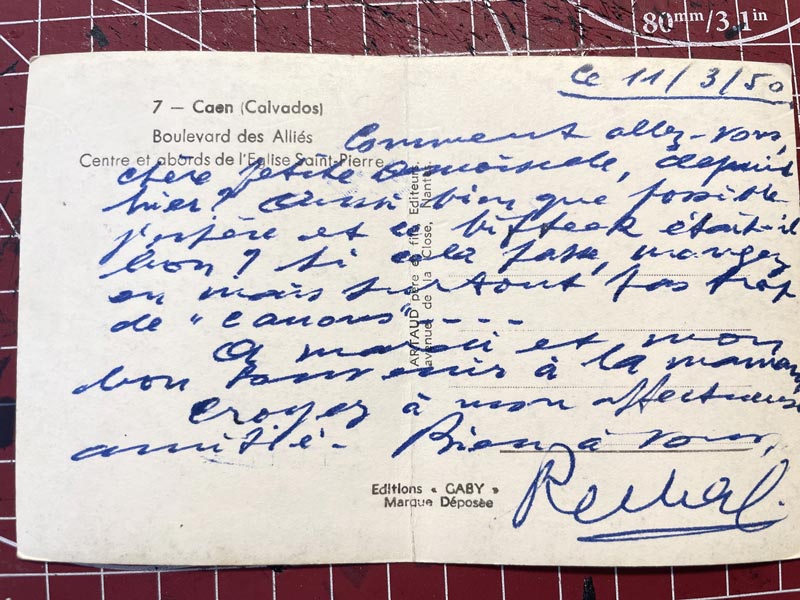 80mm/3.1in
Le 11/3/50
7 — Caen (Calvados)
Boulevard des Alliés
Centre et abords de l'Eglise Saint-Pierre
Comment allez-vous,
chère petite demoiselle, depuis
hier? Aussi bien que possible
j'espère et ce bifteck était-il
bon? Si cela, mangez
en mais surtout pas trop
de "canons" - - - -
A mardi et mon
bon souvenir à la maman,
Croyez à mon affectueuse
amitié. Bien à vous,
ARTAUD père et fils, Editeurs.
avenue de la Close, Nantes.
Editions « GABY »
Marque Déposée